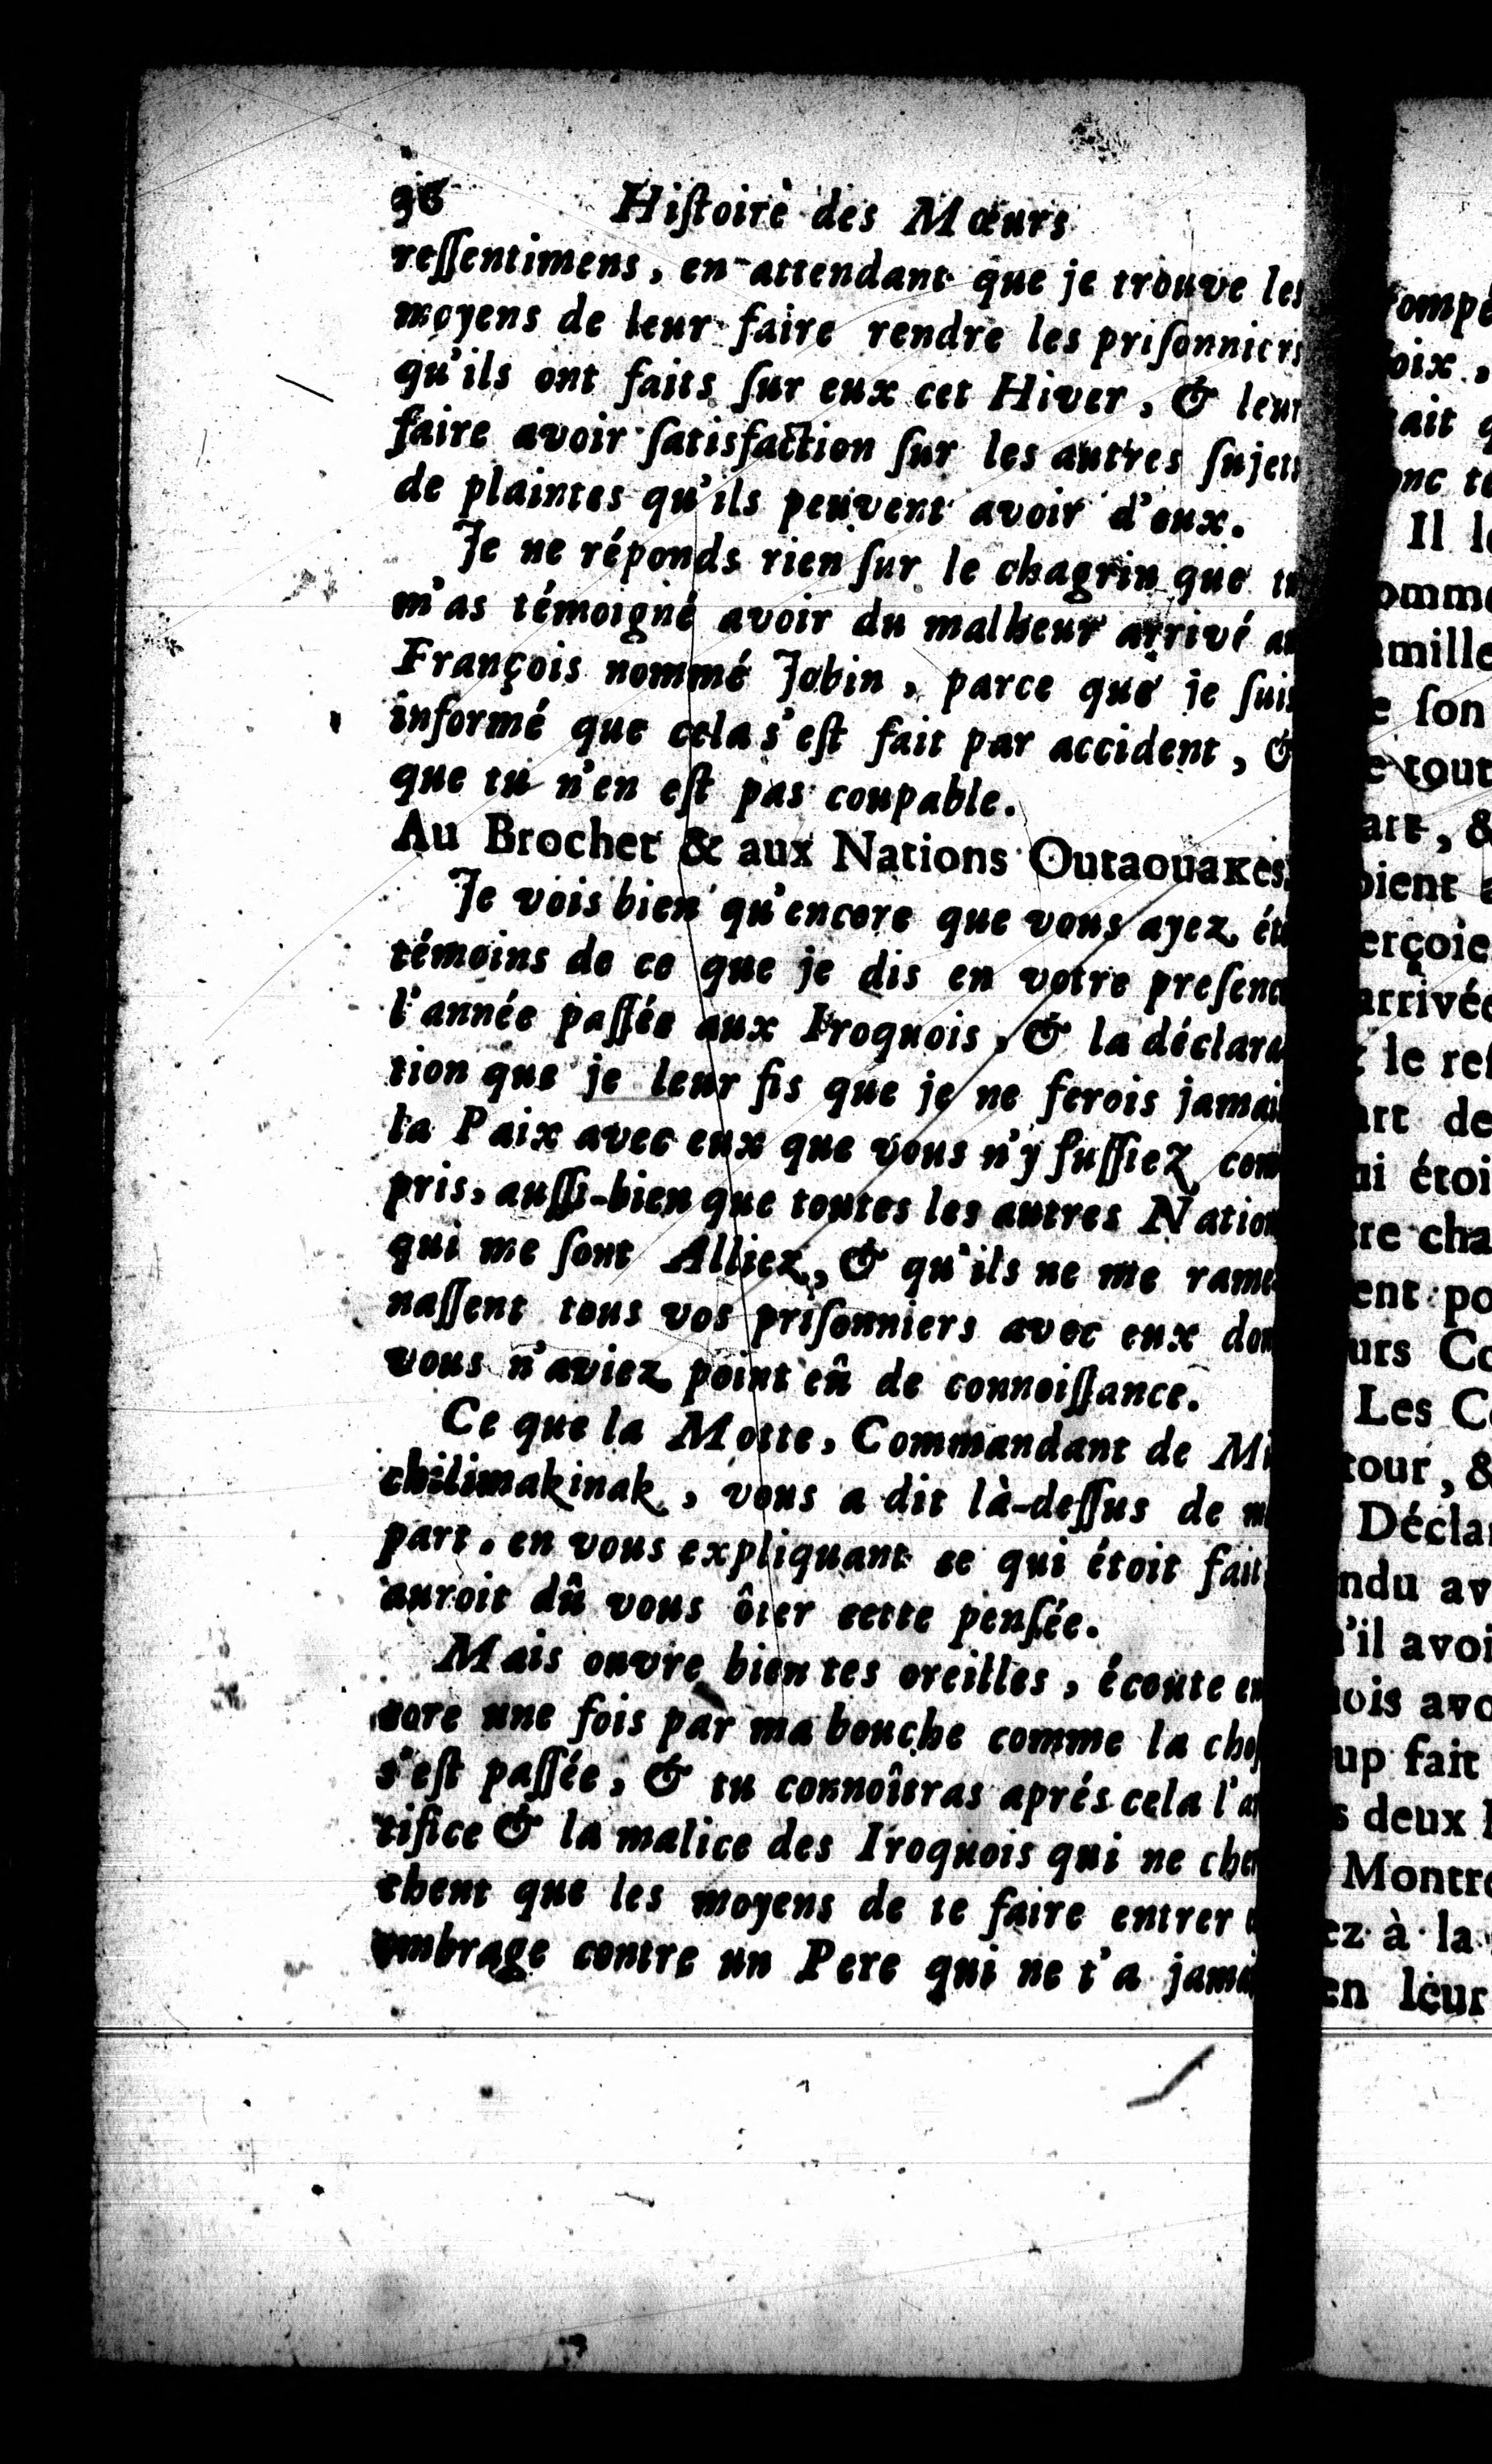 98 Hiſtoire des Mœurs
reſſentimens, en attendant que je trouve les
moyens de leur faire rendre les priſonniers
qu'ils ont faits ſur eux cet Hiver, & leur
faire avoir ſatisfaction ſur les autres ſujets
de plaintes qu'ils peuvent avoir d'eux.
Je ne réponds rien ſur le chagrin que tu
m'as témoigné avoir du malheur arrivé au
François nommé Jobin, parce que je ſuis
informé que cela s'eſt fait par accident, &
que tu n'en eſt pas coupable.
Au Brochet & aux Nations Outaouaκes.
Je vois bien qu'encore que vous ayez été
témoins de ce que je dis en votre preſenc
l'année paſſée aux Iroquois, & la déclara
tion que je leur fis que je ne ferois jamais
la Paix avec eux que vous n'y fuſſiez com
pris, auſſi-bien que toutes les autres Nation
qui me ſont Alliez, & qu'ils ne me rame
naſſent tous vos priſonniers avec eux don
vous n'aviez point eû de connoiſſance.
Ce que la Motte, Commandant de Mi
chilimakinak, vous a dit là-deſſus de m
part, en vous expliquant ce qui étoit fait
auroit dû vous ôter cette penſée.
Mais ouvre bien tes oreilles, écoute en
core une fois par ma bouche comme la choſ
s'eſt paſſée, & tu connoîtras aprés cela l'ar
tifice & la malice des Iroquois qui ne cher
chent que les moyens de te faire entrer
ombrage contre un Pere qui ne t'a jamai
ompé
oix,
ait q
onc te
Il le
omme
amille
e ſon
e tout
art, &
oient a
erçoie
arrivée
le reſ
art de
ui étoi
re cha
ent po
urs Co
Les Co
tour, &
Déclar
ndu av
'il avoi
ois avo
up fait
s deux
Montré
ez à la
en leur